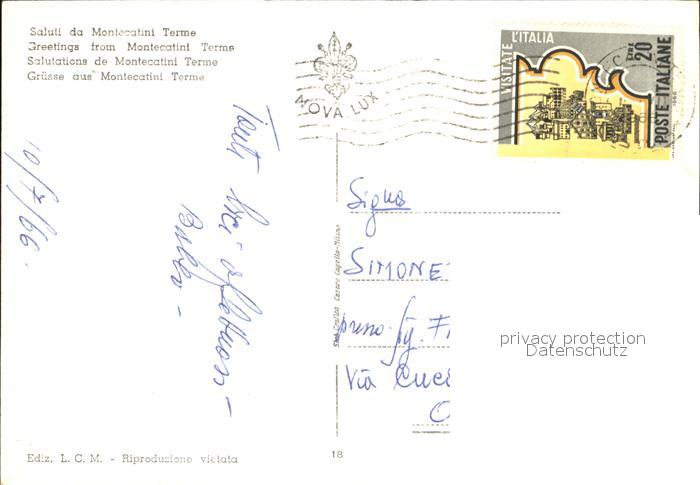 Saluti da Montecatini Terme
Greetings from Montecatini Terme
Salutations de Montecatini Terme
Grüsse aus Montecatini Terme
NOVA LUX
VISITATE L'ITALIA
LIRE 20
POSTE ITALIANE
1966
10/7/66.
Tanti baci affettuosi
Signa
SIMONE
presso Sig. F
Via
privacy protection
Datenschutz
Ediz. L. C. M. - Riproduzione vietata
18